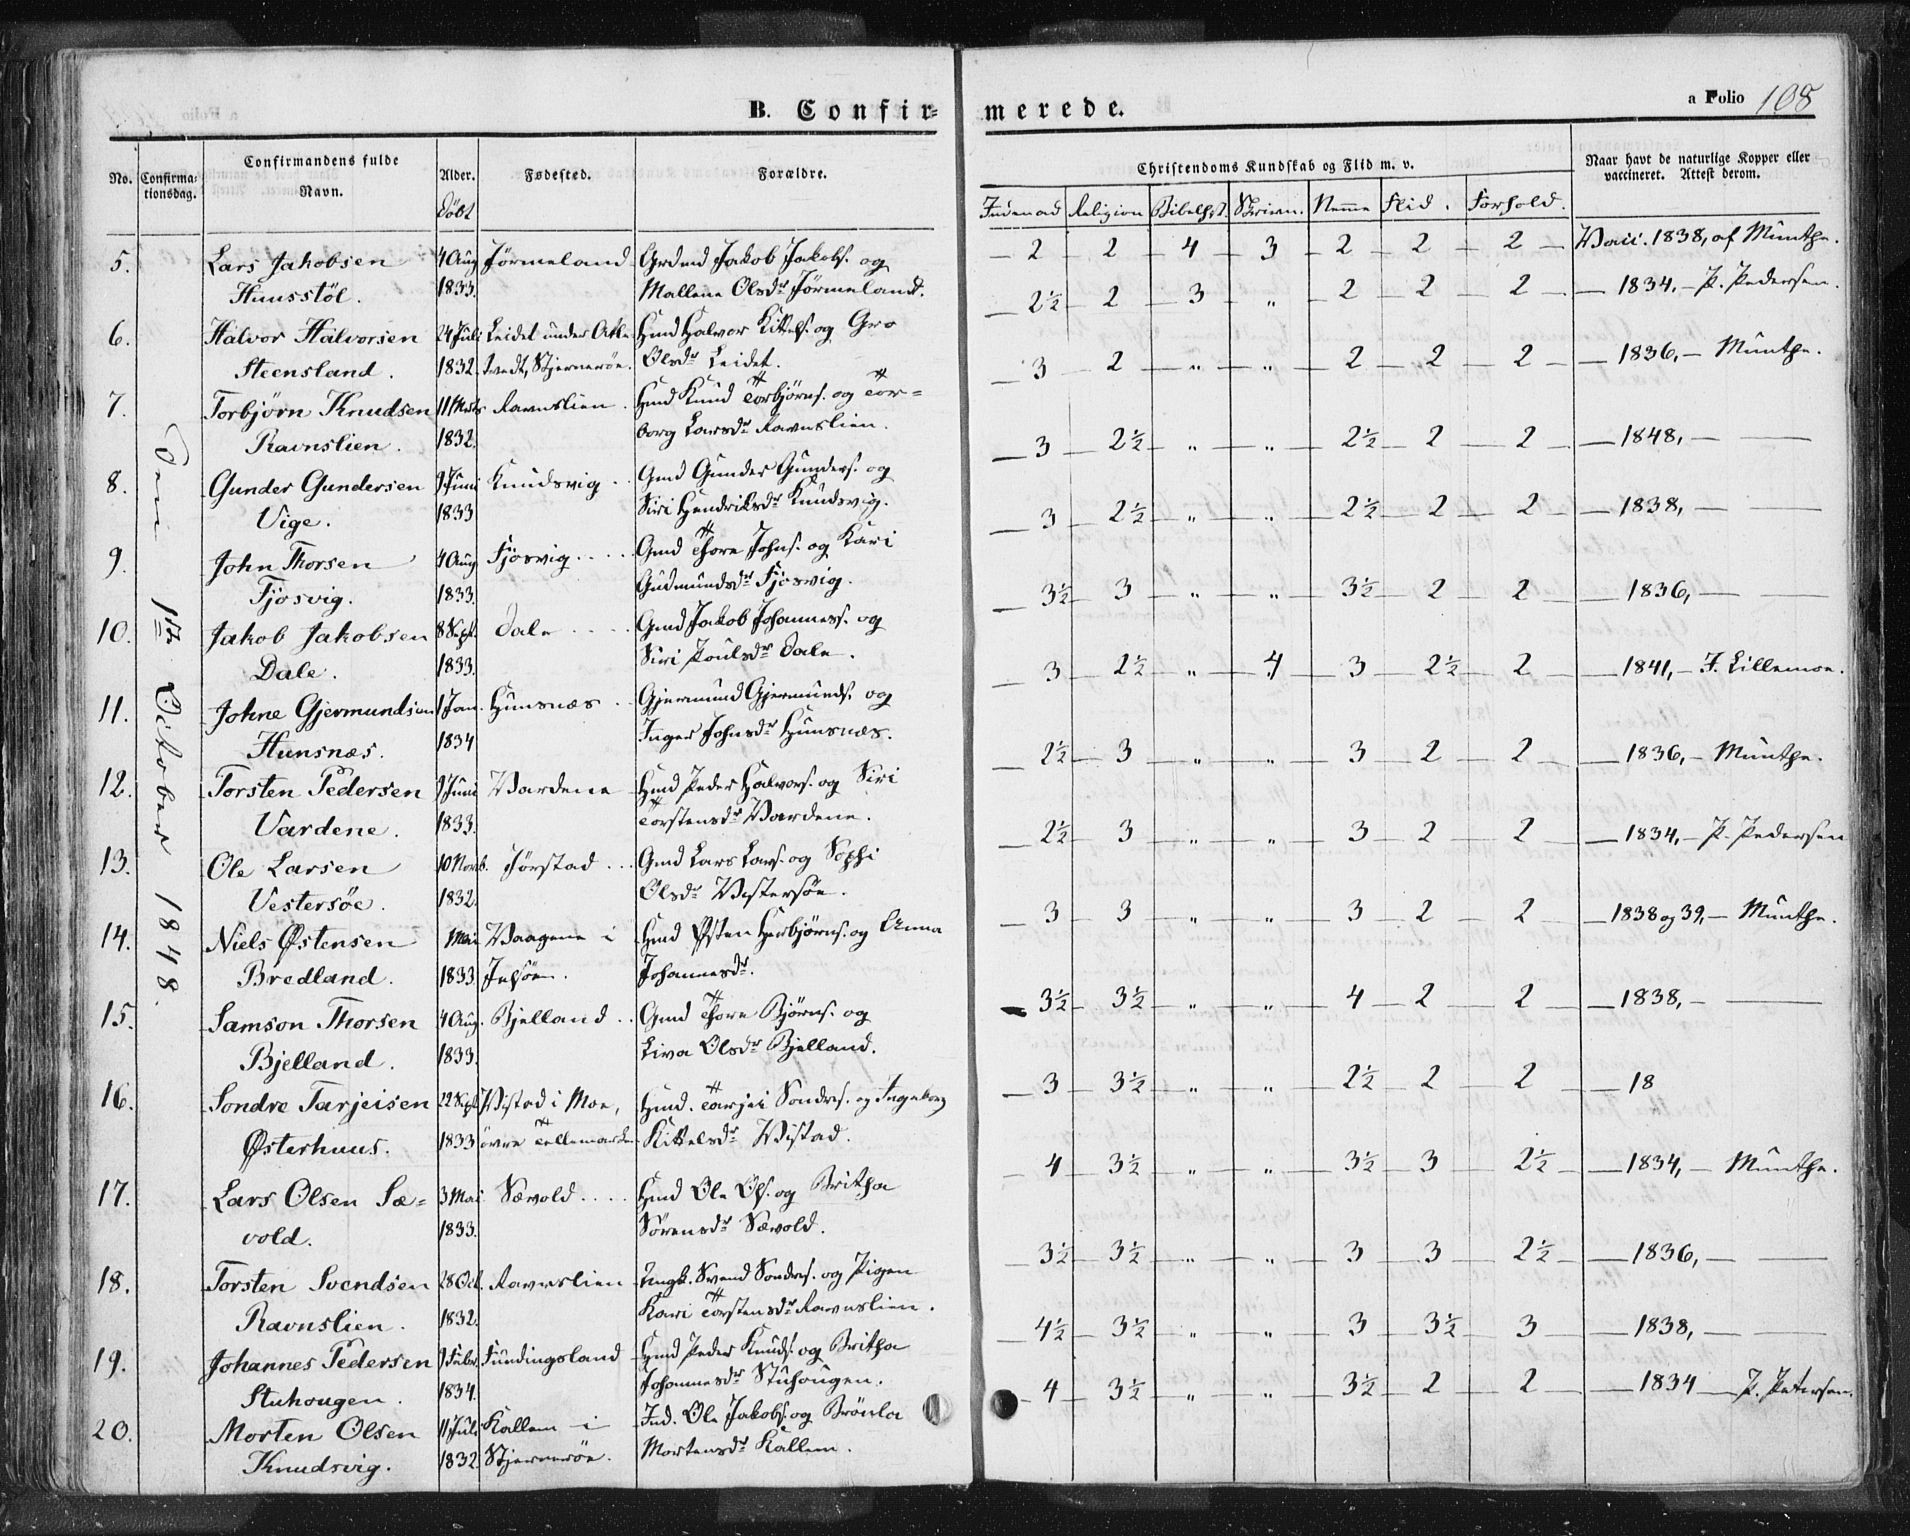 B. Confir-
merede.
a Folio 108
No. Confirma-tionsdag. Confirmandens fulde Navn. Alder. Fødested. Forældre.
Christendoms Kundskab og Flid m. v.
Naar havt de naturlige Kopper eller vaccineret. Attest derom.
døbt
Indenad Religion Bibelhist. Skrivn. Nemme Flid. Forhold.
den 1ste October 1848.
5. Lars Jakobsen 4 Aug Jörmeland Grdmd Jakob Jakobs. og
Huusstöl. 1833. Mallene Olsdr Jörmelandt.
6. Halvor Halvorsen 24 Juli Leidet under Hmd Halvor Kittels. og Gro
Steensland. 1832. tvedt, Stjerneröe. Olsdr Leidet.
7. Torbjörn Knudsen 11 Marts Ravnslien. Hmd Knud Torbjörns. og Tor=
Ravnslien. 1832. borg Larsdr Ravnslien.
8. Gunder Gundersen 9 Juni Knudsvig Gmd Gunder Gunders. og
Vige. 1833 Siri Hendriksdr Knudsvig.
9. John Thorsen 4 Aug Fjösvig Gmd Thore Johns. og Kari
Fjosvig. 1833. Gudmundsdr Fjosvig.
10. Jakob Jakobsen 8 Sept. Dale Gmd Jakob Johanness. og
Dale. 1833. Siri Poulsdr Dale.
11. Johne Gjermundsen 1 Jan. Hunsnæs Gjermund Gjermunds. og
Hunsnæs. 1834 Inger Johnsdr Hunsnæs.
12. Torsten Pedersen 9 Juni Vardene Hmd Peder Halvors. og Siri
Vardene. 1833. Torstensdr Vardene.
13. Ole Larsen 10 Novb. Jörstad Gmd Lars Lars. og Sophi
Vestersöe. 1832. Olsdr Vestersöe.
14. Niels Østensen Mai Vaagene i Hmd Østen Herbjörns. og Anna
Bredland. 1833. Jelsöe. Johannesdr.
15. Samson Thorsen 4 Aug. Bjelland Gmd Thore Björns. og
Bjelland. 1833. Liva Olsdr Bjelland.
16. Sondre Tarjeisen 22 Sept. Vistad i Moe, Hmd. Tarjei Sondres. og Ingeborg
Østerhuus. 1833 övre Tellemarken Kittelsdr Vistad.
17. Lars Olsen Sæ- 3 Mai Sævold Hmd Ole Ols. og Britha
vold. 1833. Sörensdr Sævold.
18. Torsten Svendsen 28 Oct. Ravnslien Ungk. Svend Sondres. og Pigen
Ravnslien. 1832. Kari Torstensdr Ravnslien.
19. Johannes Pedersen 9 Febr. Fundingsland Hmd Peder Knuds. og Britha
Stuhougen. 1834. Johannesdr Stuhougen.
20. Morten Olsen 11 Juli Kallem i Ind. Ole Jakobs. og Brönla
Knudsvig. 1832. Stjerneröe. Mortensdr Kallem.
2 2 4 3 2 2 2 Vacc. 1838, af Münthe.
2½ 2 3 „ 2 2 2 — 1834, — P. Pedersen.
3 2 „ „ 2 2 2 — 1836, — Münthe.
3 2½ „ „ 2½ 2 2 — 1848, — —
3 2½ „ „ 2½ 2 2 — 1838, — —
3½ 3 „ „ 3½ 2 2 — 1836, — —
3 2½ „ 4 3 2½ 2 — 1841, — F. Lillemoe.
2½ 3 „ „ 3 2 2 — 1836, — Münthe.
2½ 3 „ „ 3 2 2 — 1834, — P. Pedersen
3 3 „ „ 3 2 2 — 1838 og 39, — Münthe.
3½ 3½ „ „ 4 2 2 — 1838, — —
3 3½ „ „ 2½ 2 2 — 18
4 3½ „ „ 3½ 3 2½ — 1834, — Münthe.
3½ 3½ „ „ 3 3 2½ — 1836, — —
4½ 3½ „ „ 3 3½ 3 — 1838, — —
4 3½ „ „ 3½ 2 2 — 1834 — P. Petersen.